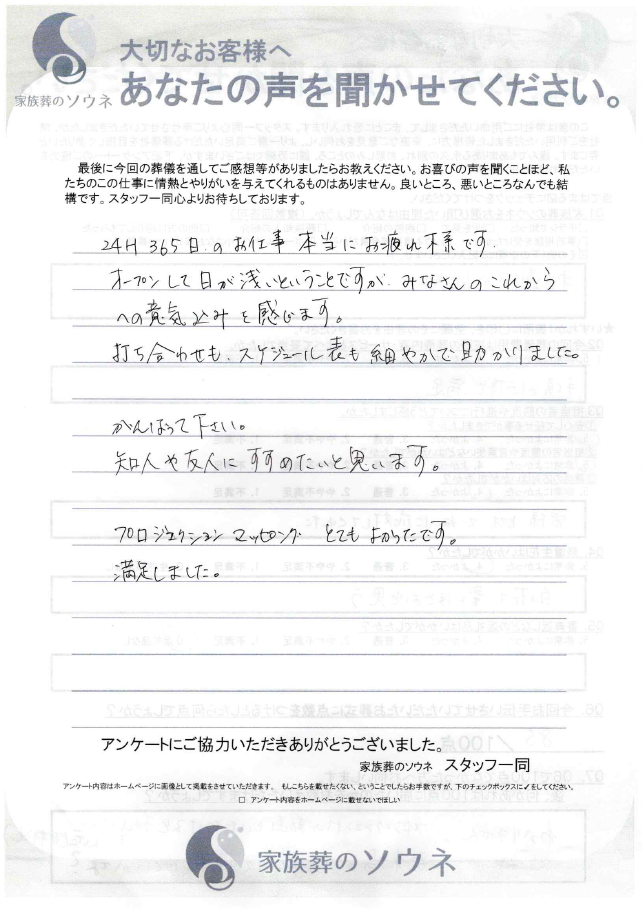 大切なお客様へ
あなたの声を聞かせてください。
家族葬のソウネ
最後に今回の葬儀を通してご感想等がありましたらお教えください。お喜びの声を聞くことほど、私
たちのこの仕事に情熱とやりがいを与えてくれるものはありません。良いところ、悪いところなんでも結
構です。スタッフ一同心よりお待ちしております。
24H 365日のお仕事 本当にお疲れ様です。
オープンして日が浅いということですが、みなさんのこれから
への意気込みを感じます。
打ち合わせも、スケジュール表も細やかで助かりました。
がんばって下さい。
知人や友人にすすめたいと思います。
プロジェクションマッピング とてもよかったです。
満足しました。
アンケートにご協力いただきありがとうございました。
家族葬のソウネ スタッフ一同
アンケート内容はホームページに画像として掲載をさせていただきます。 もしこちらを載せたくない、ということでしたらお手数ですが、下のチェックボックスに✓をしてください。
□ アンケート内容をホームページに載せないでほしい
家族葬のソウネ